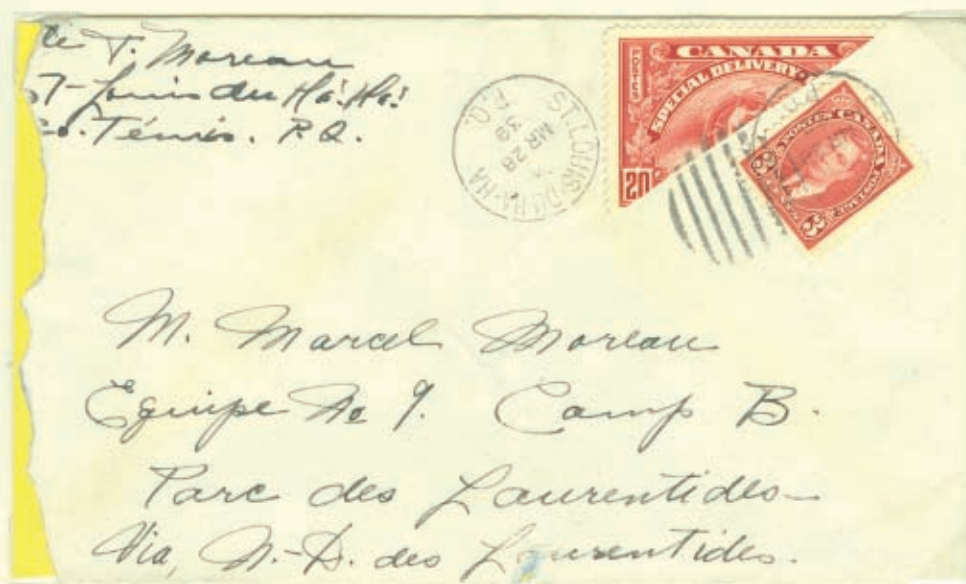 T. Moreau
St-Louis du Ha! Ha!
Co. Témis. P.Q.
ST. LOUIS-DU-HA-HA
MR 28
39
P.Q.
CANADA
SPECIAL DELIVERY
20
POSTES CANADA
3 3
M. Marcel Moreau
Equipe No 9. Camp B.
Parc des Laurentides
Via, N.-D. des Laurentides.